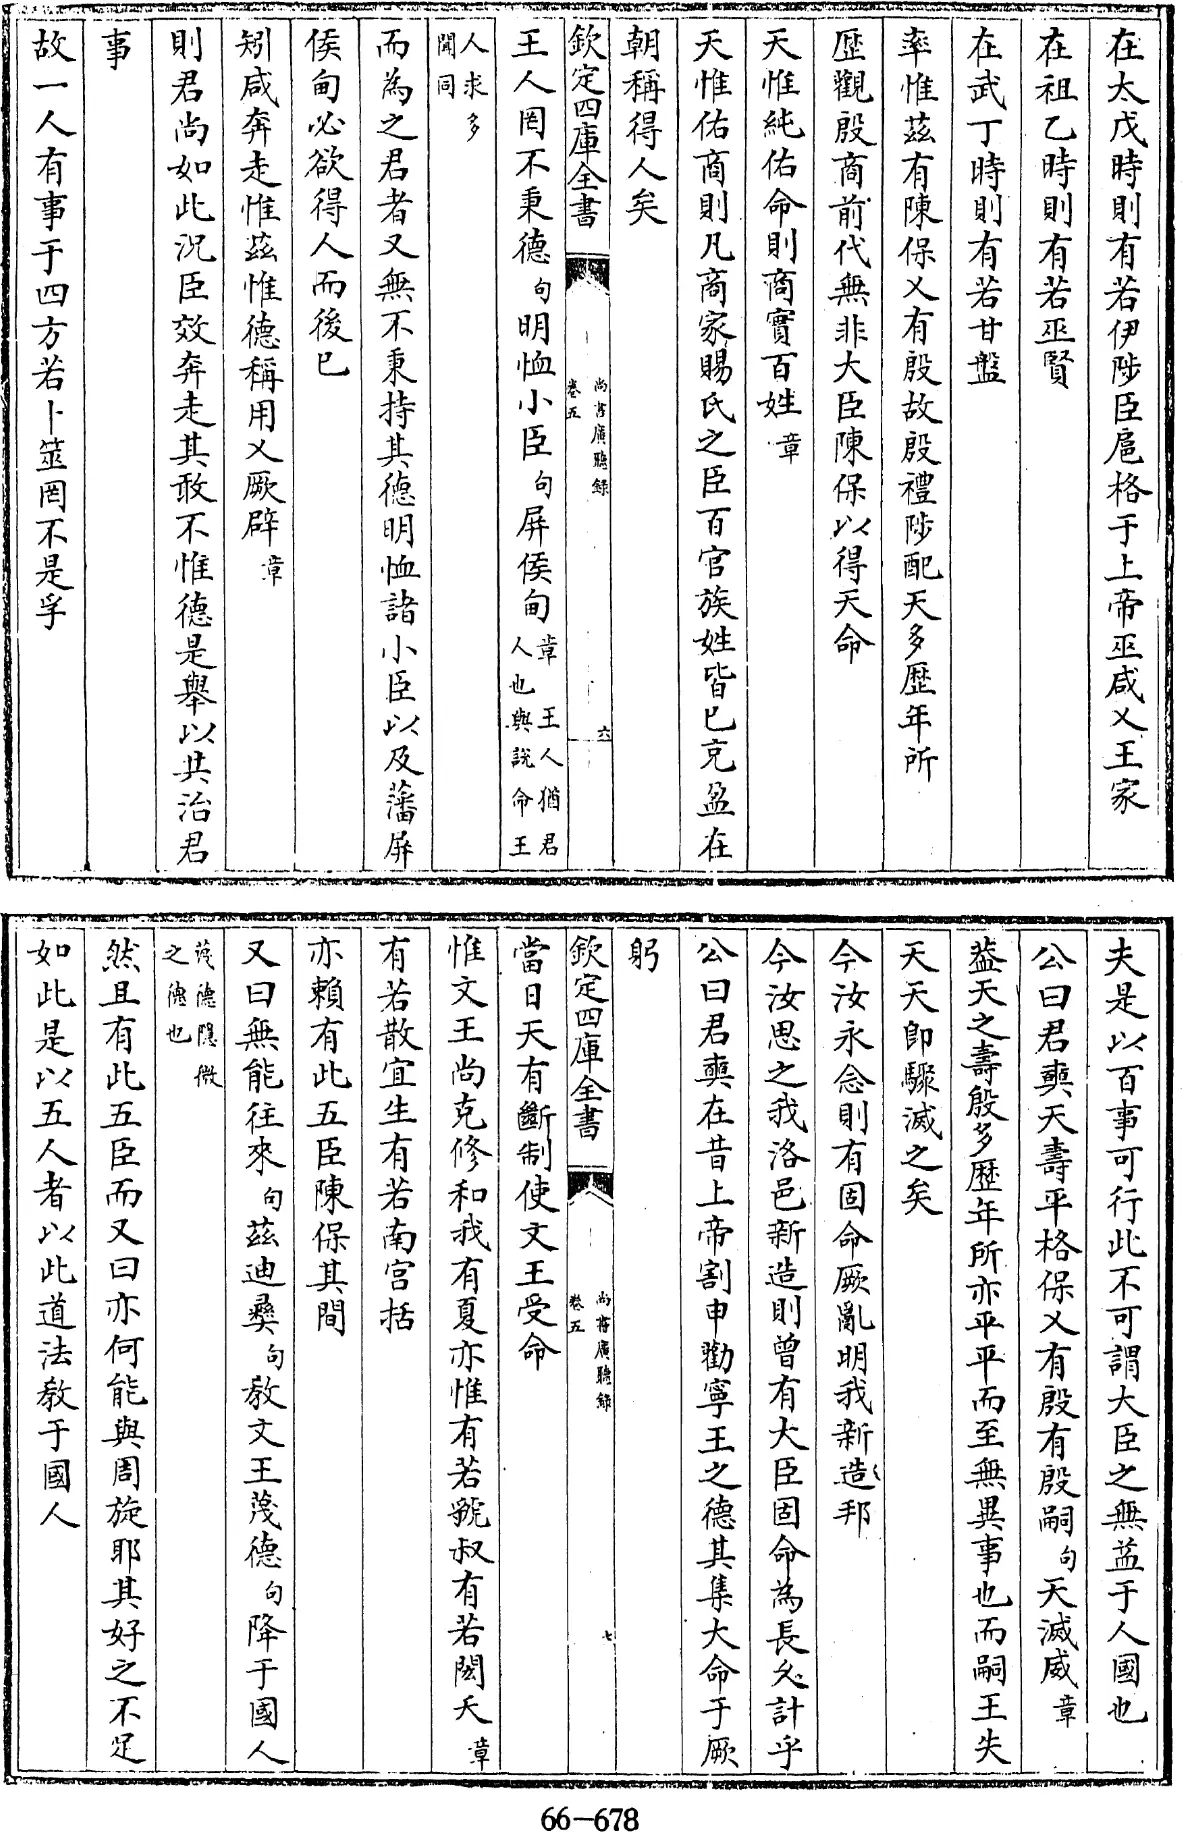 在太戊時則有若伊陟臣扈格于上帝巫咸乂王家
在祖乙時則有若巫賢
在武丁時則有若甘盤
率惟茲有陳保乂有殷故殷禮陟配天多歷年所
歷觀殷商前代無非大臣陳保以得天命
天惟純佑命則商實百姓章
天惟佑商則凡商家賜氏之臣百官族姓皆已克盈在
朝稱得人矣
欽定四庫全書
尚書廣聽錄
卷五
六
王人罔不秉德句明恤小臣句屏侯甸章王人猶君
人也與說命王
人求多
聞同
而為之君者又無不秉持其德明恤諸小臣以及藩屏
侯甸必欲得人而後已
矧咸奔走惟茲惟德稱用乂厥辟章
則君尚如此況臣效奔走其敢不惟德是舉以共治君
事
故一人有事于四方若卜筮罔不是孚
夫是以百事可行此不可謂大臣之無益于人國也
公曰君奭天壽平格保乂有殷有殷嗣句天滅威章
葢天之壽殷多歷年所亦平平而至無異事也而嗣王失
天天卽驟滅之矣
今汝永念則有固命厥亂明我新造邦
今汝思之我洛邑新造則曾有大臣固命為長久計乎
公曰君奭在昔上帝割申勸寧王之德其集大命于厥
躬
欽定四庫全書
尚書廣聽錄
卷五
七
當日天有斷制使文王受命
惟文王尚克修和我有夏亦惟有若虢叔有若閎夭章
有若散宜生有若南宮括
亦賴有此五臣陳保其間
又曰無能往來句茲迪彝句教文王蔑德句降于國人
蔑德隱微
之德也
然且有此五臣而又曰亦何能與周旋耶其好之不足
如此是以五人者以此道法教于國人
66-678